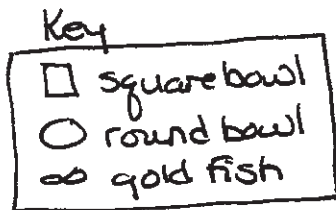 Key
square bowl
round bowl
gold fish